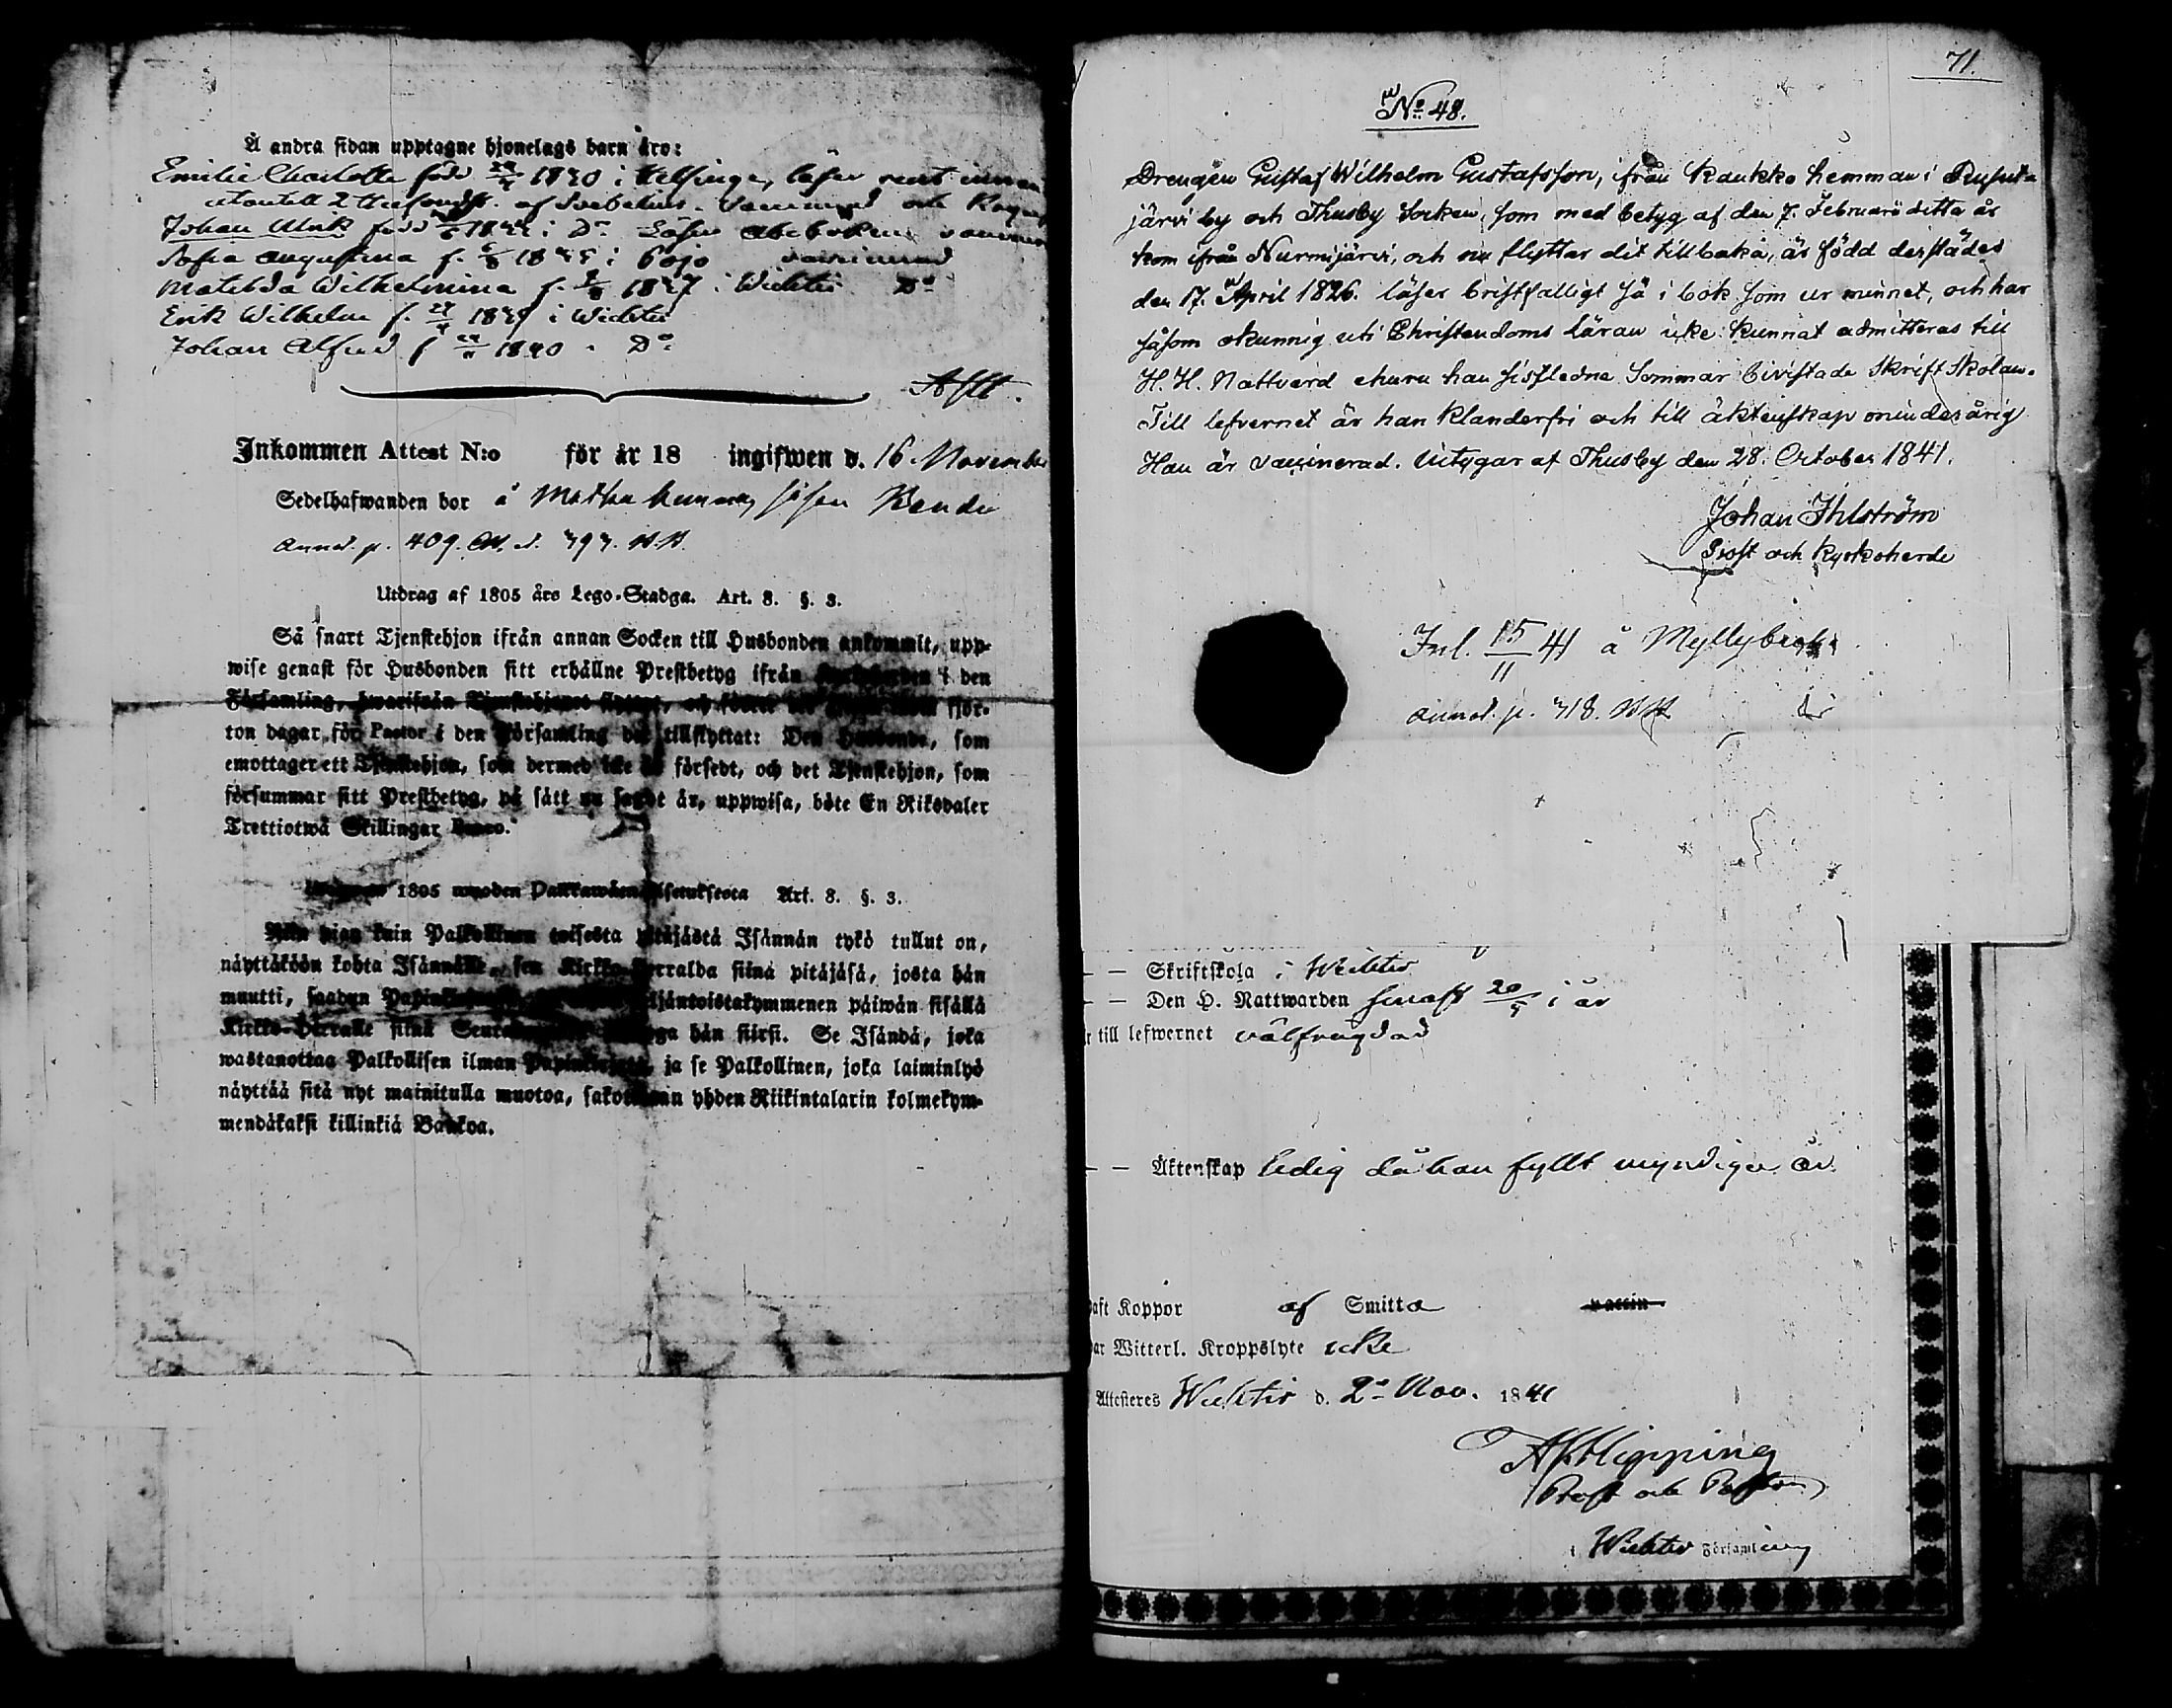 Å andra sidan upptagne hjonelags barn äro:
Emilie Charlotta född 1830 i Helsinge, läser rent innan
utantill af Svebelius. Vaccinerad och
Johan Ulrik född i Do Läser abcboken vaccinerad
Sofia Augustina f. 1835 i Pojo vaccinerad
Matilda Wilhelmina f. 1837 i Wichtis Do
Erik Wilhelm f. 1839 i Wichtis
Johan Alfred f 1840 Do
Inkommen Attest N:o för år 18 ingifwen d. 16. November
Sedelhafwanden bor å
annot. p. 409.
Utdrag af 1805 års Lego-Stadga. Art. 8. §. 3.
Så snart Tjenstehjon ifrån annan Socken till Husbonden ankommit, upp-
wise genast för Husbonden sitt erhållne Prestbetyg ifrån i den
Församling, hwarifrån Tjenstehjonet flyttat, och sjor-
ton dagar, för Pastor i den Församling dit tillflyttat: Den Husbonde, som
emottager ett Tjenstehjon, som dermed icke är försedt, och det Tjenstehjon, som
försummar sitt Prestbetyg, på sätt nu sagdt är, uppwisa, böte En Riksdaler
Trettiotwå Skillingar Banco.
1805 wuoden Palkkawäen Asetuksesta Art. 8. §. 3.
Niin pian kuin Palkollinen toisesta pitäjästä Isännän tykö tullut on,
näyttäköön kohta Isännälle, sen Kirkko-Herralda siinä pitäjäsä, josta hän
muutti, saadun neljäntoistakymmenen päiwän sisällä
Kirkko-Herralle siinä hän siirsi. Se Isändä, joka
wastanottaa Palkollisen ilman Papinkirjata, ja se Palkollinen, joka laiminlyö
näyttää sitä nyt mainitulla muotoa, sakotetaan yhden Riikintalarin kolmekym-
mendäkaksi killinkiä Bankoa.
71.
No 48.
Drengen Gustaf Wilhelm Gustafsson, ifrån Kaukko hemman i Rusut-
järvi by och Thusby Socken, som med betyg af den 7. Februarii detta år
kom ifrån Nurmijärvi, och nu flyttar dit tillbaka, är född derstädes
den 17. April 1826. läser bristfälligt så i bok som ur minnet, och har
såsom okunnig uti Christendoms läran icke kunnat admitteras till
H. H. Nattvard ehuru han sistledne Sommar bivistade Skriftskolan.
Till lefvernet är han klanderfri och till äktenskap omindersårig
Han är vaccinerad. Witygar af Thusby den 28. October 1841.
Johan Ihlström
Prost och Kyrkoherde
Inl. 15/11 41 å
annot. p. 318.
— — Skriftskola i Wichtis
— — Den H. Nattwarden senast 20/5 i år
är till lefwernet välfrägdad
— — Äktenskap ledig då han fyllt myndiga år.
haft Koppor af Smitta vaccin
har Witterl. Kroppslyte icke
Attesteres Wichtis d. 2a Nov. 1841
A J Hipping
Prost och Pastor
i Wichtis Församling